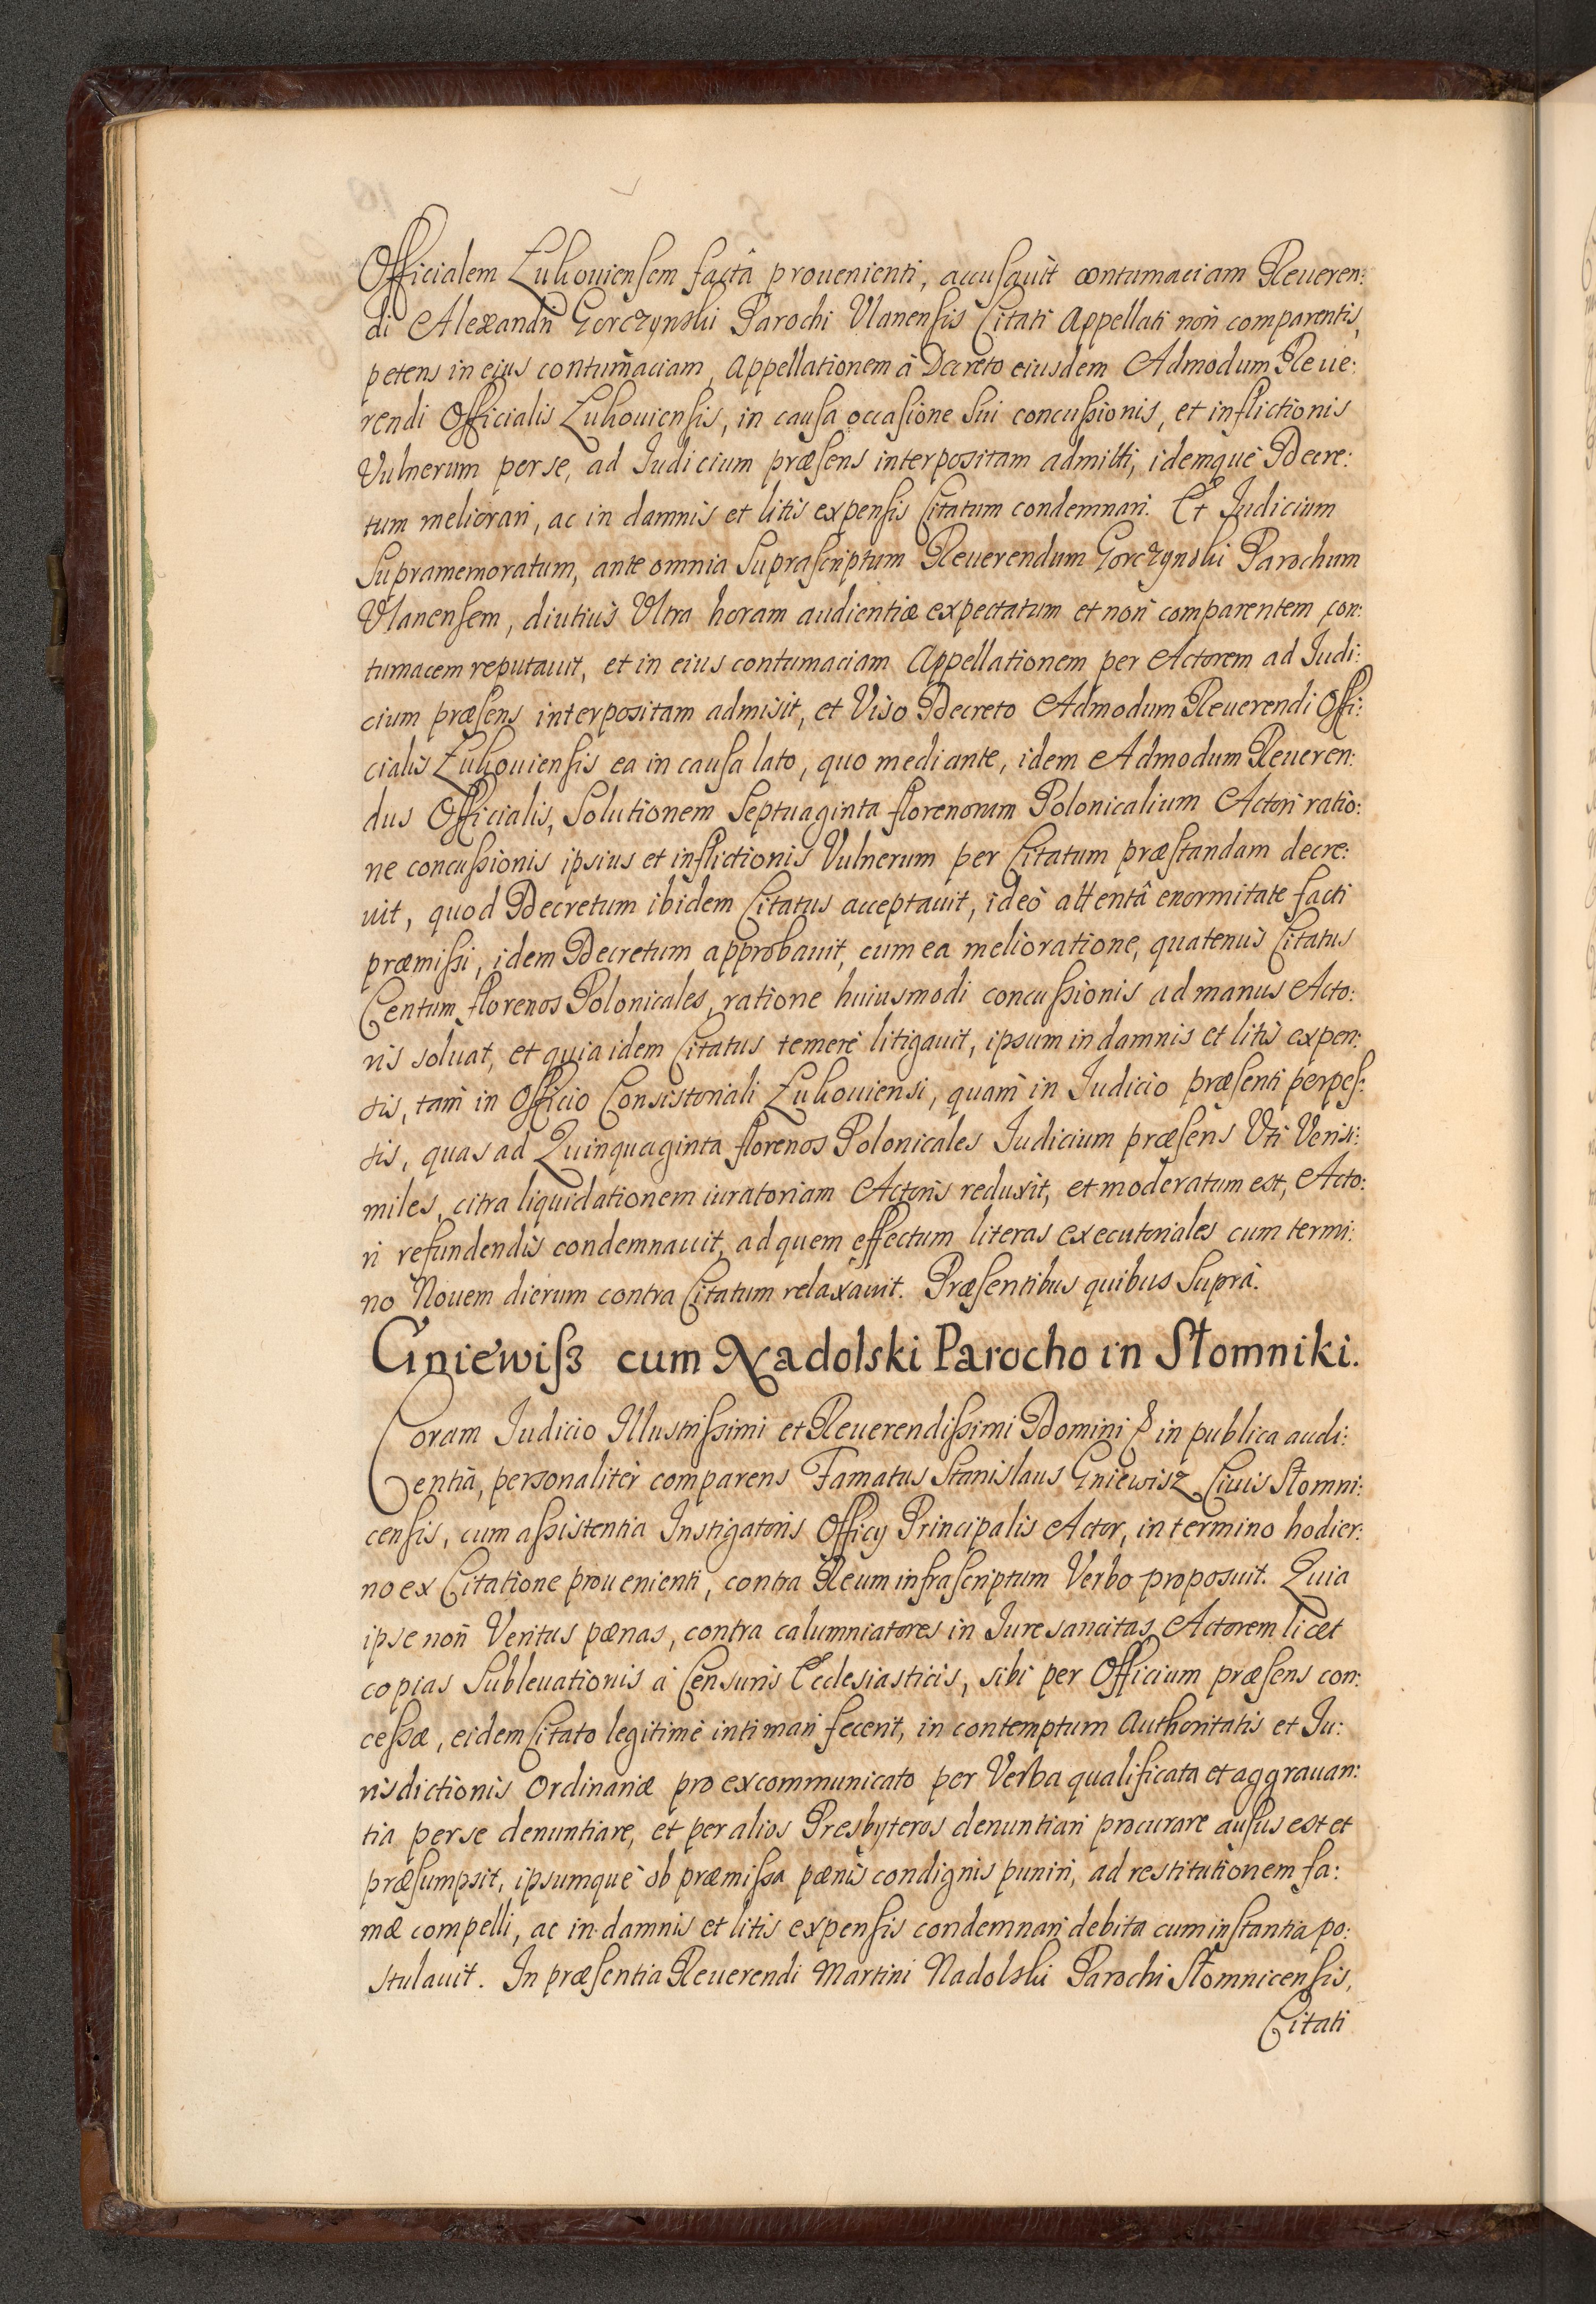 Officialem Lukouiensem factâ prouenienti, accusauit contumaciam Reueren:
di Alexandri Gorczynski Parochi Vlanensis Citati Appellati non comparentis,
petens in eius contumaciam, Appellationem à Decreto eiusdem Admodum Reue:
rendi Officialis Lukouiensis, in causa occasione sui concussionis, et inflictionis
Vulnerum per se, ad Iudicium præsens interpositam admitti, idemque Decre:
tum meliorari, ac in damnis et litis expensis Citatum condemnari. Et Iudicium
Supramemoratum, ante omnia Suprascriptum Reuerendum Gorczynski Parochum
Vlanensem, diutius Vltra horam audientiæ expectatum et non comparentem con:
tumacem reputauit, et in eius contumaciam Appellationem per Actorem ad Iudi:
cium præsens interpositam admisit, et Viso Decreto Admodum Reuerendi Offi:
cialis Lukouiensis ea in causa lato, quo mediante, idem Admodum Reueren:
dus Officialis, Solutionem Septuaginta florenorum Polonicalium Actori ratio:
ne concussionis ipsius et inflictionis Vulnerum per Citatum præstandam decre:
uit, quod Decretum ibidem Citatus acceptauit, ideò attentâ enormitate facti
præmissi, idem Decretum approbauit, cum ea melioratione, quatenus Citatus
Centum florenos Polonicales, ratione huiusmodi concussionis ad manus Acto:
ris soluat, et quia idem Citatus temerè litigauit, ipsum in damnis et litis expen:
sis, tam in Officio Consistoriali Lukouiensi, quam in Iudicio præsenti perpes:
sis, quas ad Quinquaginta florenos Polonicales Iudicium præsens Vti Verisi:
miles, citra liquidationem iuratoriam Actoris reduxit, et moderatum est, Acto:
ri refundendis condemnauit, ad quem effectum literas executoriales cum termi:
no Nouem dierum contra Citatum relaxauit. Præsentibus quibus Suprà.
Gniewisz cum Nadolski Parocho in Słomniki.
Coram Iudicio Illustrissimi et Reuerendissimi Domini & in publica audi:
entia, personaliter comparens Famatus Stanislaus Gniewisz Ciuis Słomni:
censis, cum assistentia Instigatoris Officij Principalis Actor, in termino hodier:
no ex Citatione prouenienti, contra Reum infrascriptum Verbo proposuit. Quia
ipse non Veritus pœnas, contra calumniatores in Iure sancitas, Actorem licet
copias Subleuationis à Censuris Ecclesiasticis, sibi per Officium præsens con:
cessæ, eidem Citato legitimè intimari fecerit, in contemptum Authoritatis et Iu:
risdictionis Ordinariæ pro excommunicato per Verba qualificata et aggrauan:
tia per se denuntiare, et per alios Presbyteros denuntiari procurare ausus est et
præsumpsit, ipsumque ob præmissa pœnis condignis puniri, ad restitutionem fa:
mæ compelli, ac in damnis et litis expensis condemnari debita cum instantia po:
stulauit. In præsentia Reuerendi Martini Nadolski Parochi Słomnicensis,
Citati